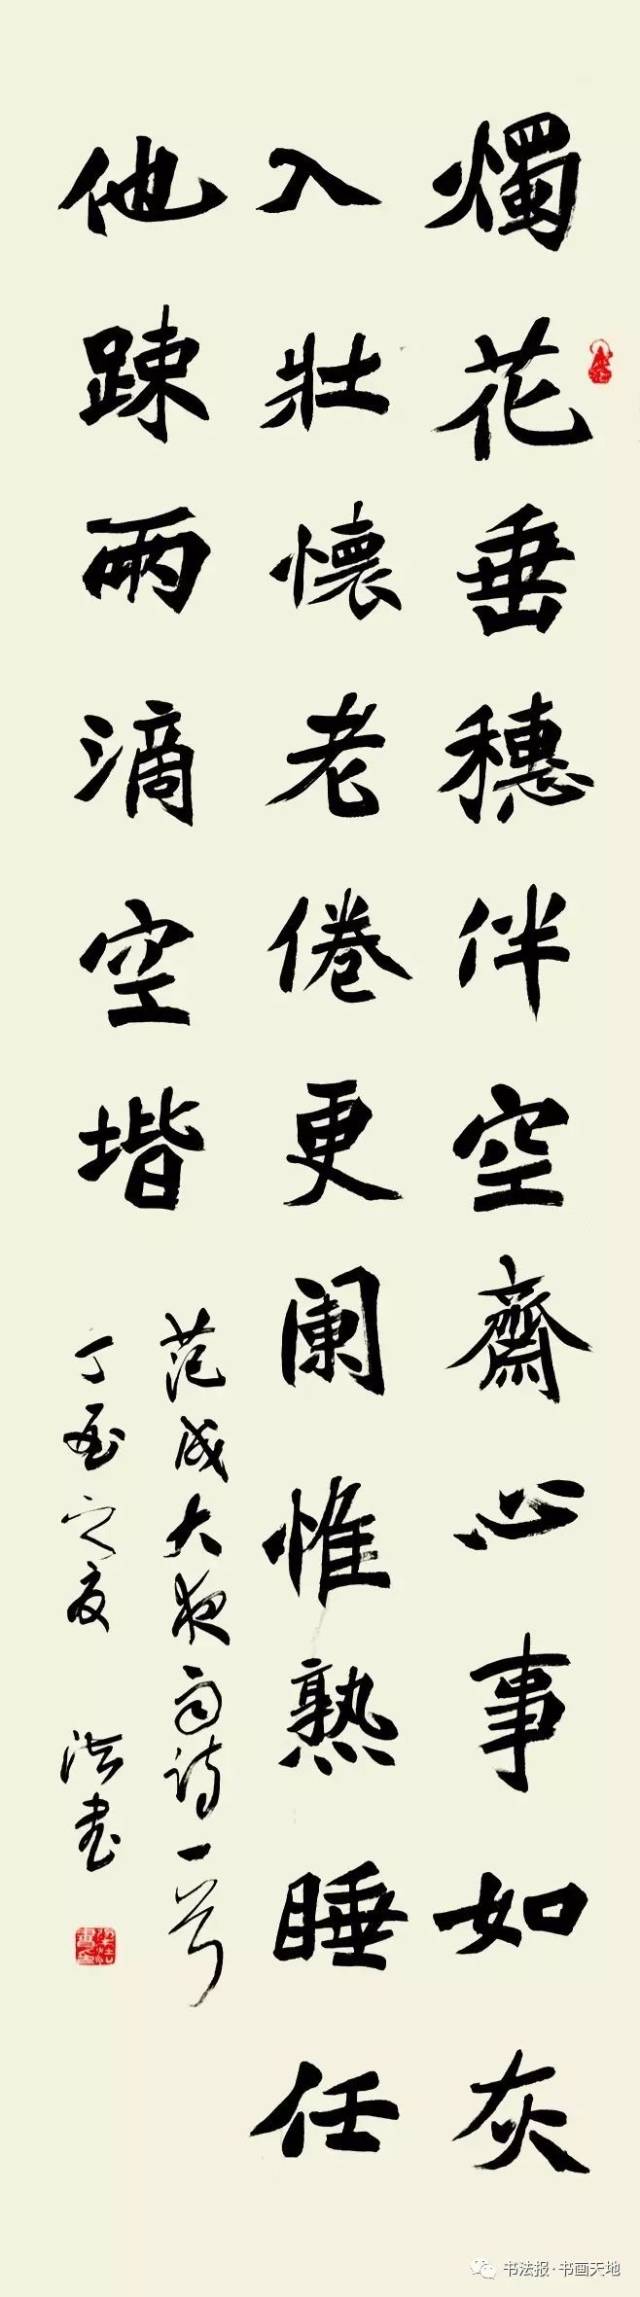 燭花垂穗伴空齋心事如灰
入壯懷老倦更闌惟熟睡任
他踈雨滴空堦
范成大夜雨詩一首
丁酉之夏 書
书法报·书画天地